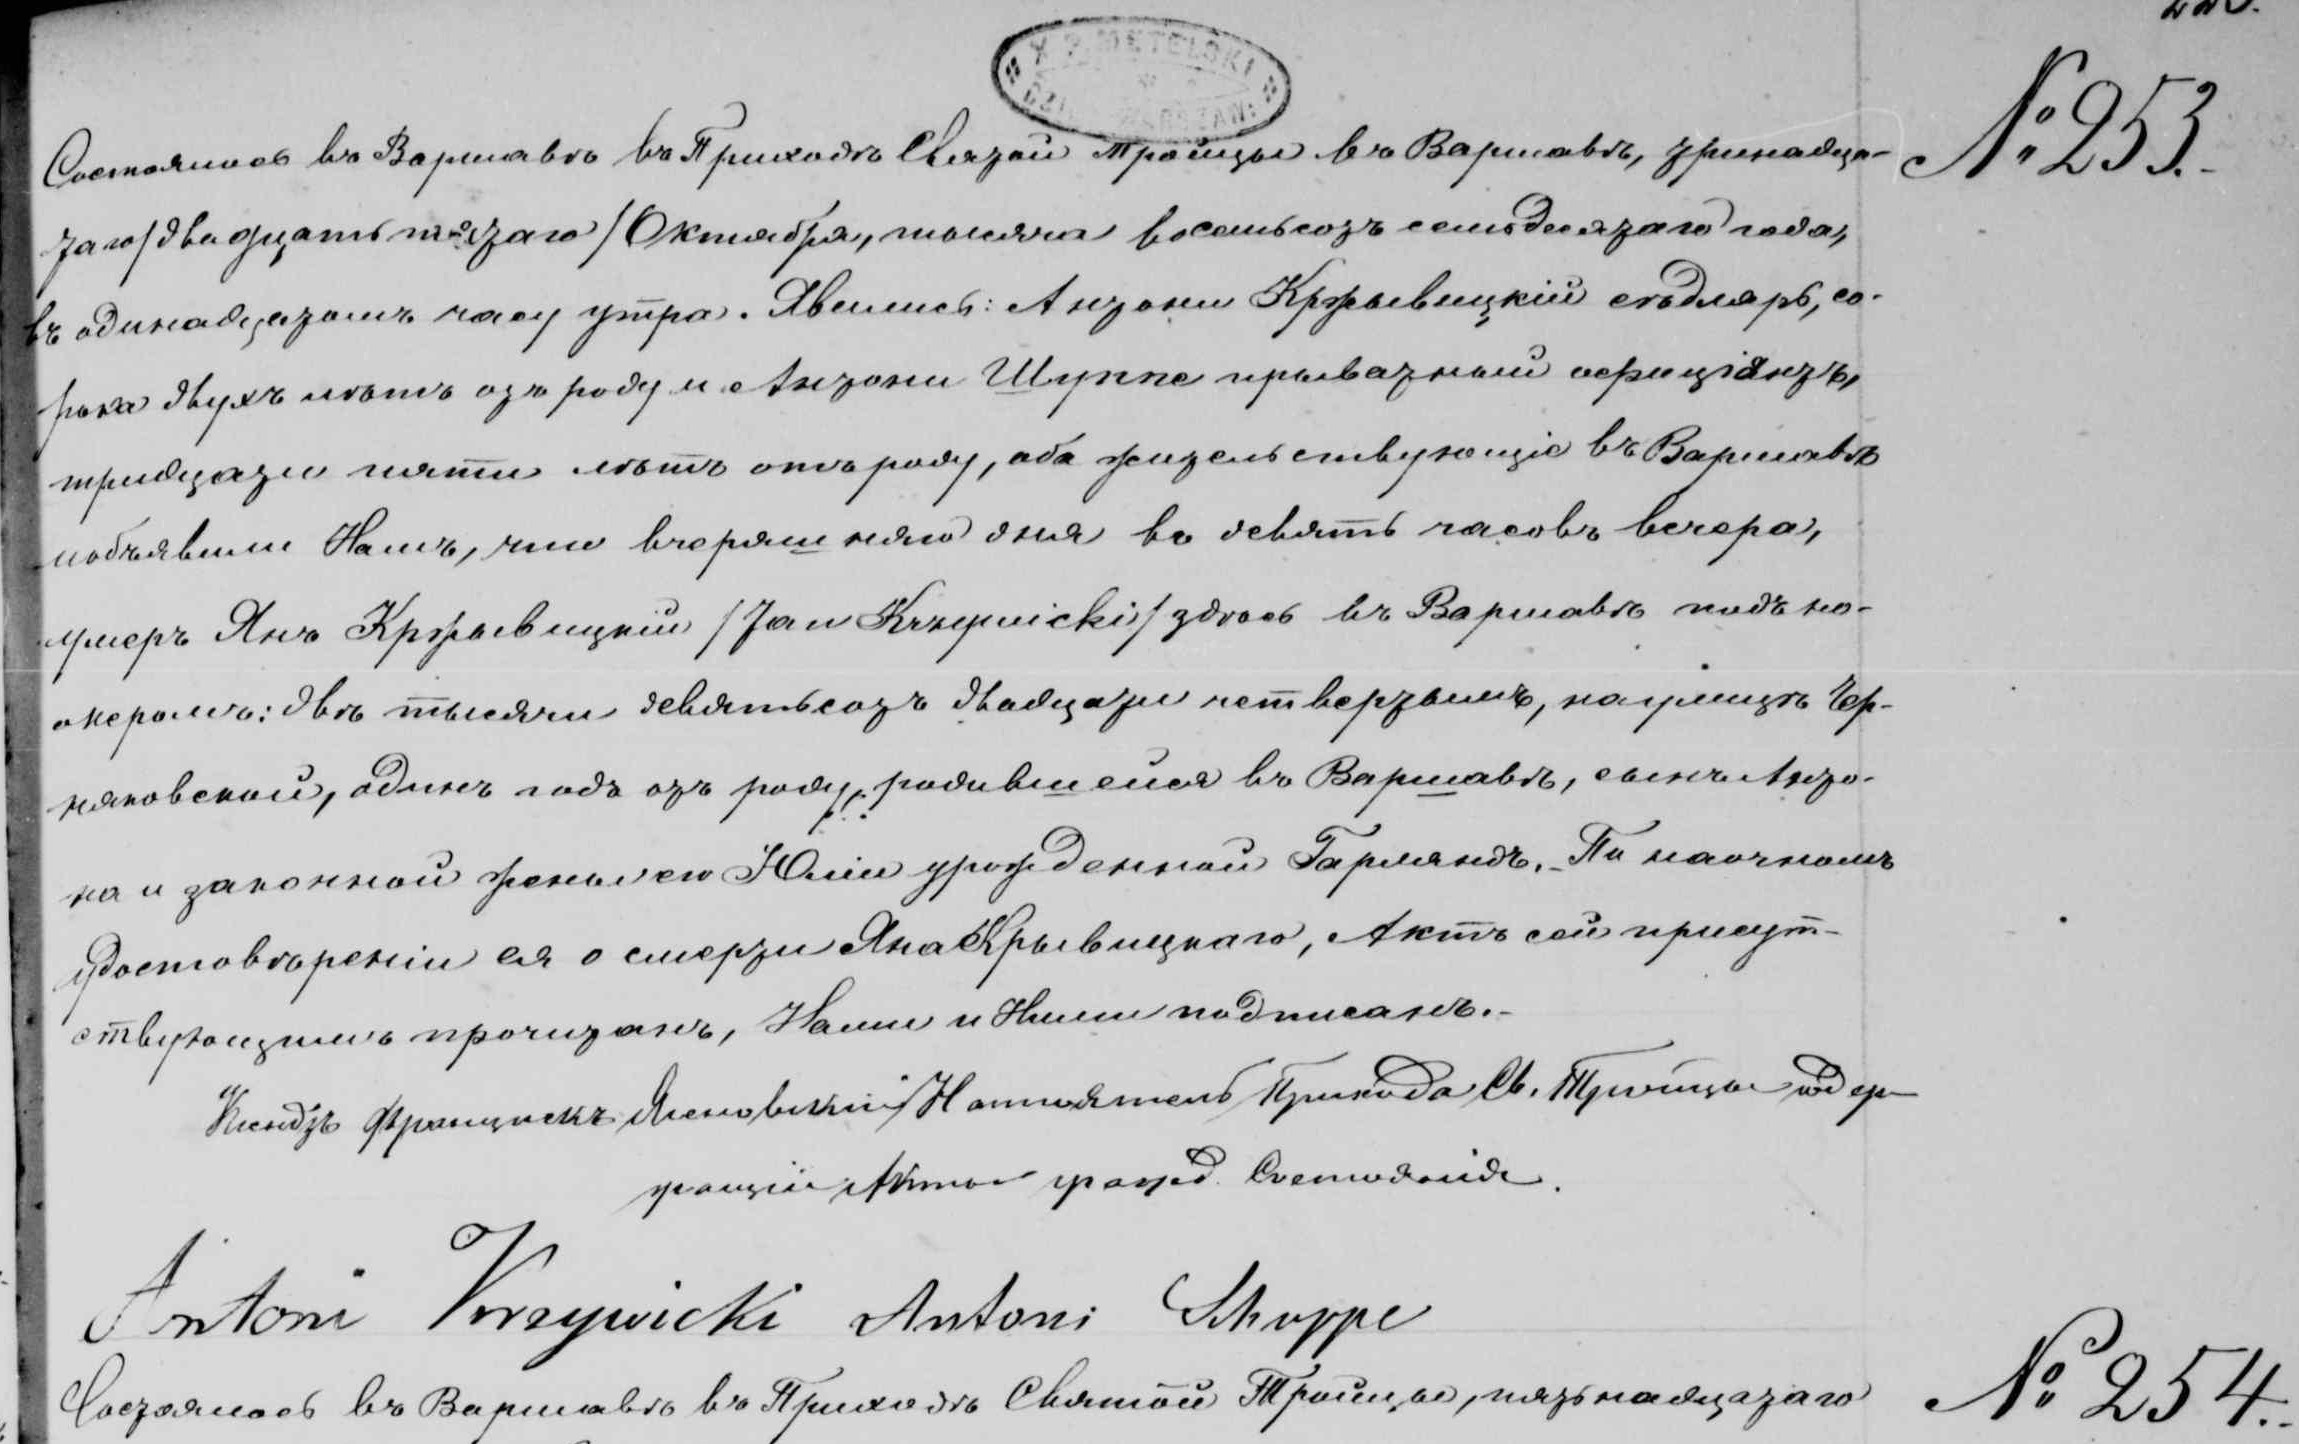 № 253.-
Состоялось въ Варшавѣ въ Приходѣ Святой Троицы въ Варшавѣ, тринадца-
таго/двадцать пятаго/Октября, тысяча восемьсотъ семьдесятаго года,
въ одинадцатомъ часу утра. Явились: Антони Кржывицкій сѣдляръ, со-
рока двухъ лѣтъ отъ роду и Антони Шуппе прыватный оффиціянтъ,
тридцати пяти лѣтъ отъ роду, оба жительствующіе въ Варшавѣ
и объявили Намъ, что вчерашняго дня въ девять часовъ вечера,
умеръ Янъ Кржывицкій /Jan Krzywicki/ здѣсь въ Варшавѣ подъ но-
меромъ: двѣ тысячи девятьсотъ двадцати четвертымъ, на улицѣ Чер-
няковской, одинъ годъ отъ роду, родившейся въ Варшавѣ, сынъ Анто-
на и законной жены его Юліи урожденной Гарляндъ.- По наочномъ
удостовѣреніи ся о смерти Яна Крывицкаго, Актъ сей присут-
ствующимъ прочитанъ, Нами и Ними подписанъ.-
Ксендзъ Францискъ Настоятель Прихода Св. Троицы
Актов гражд. Состоянія.
Antoni Krzywicki Antoni Schuppe
№ 254.-
Состоялось въ Варшавѣ въ Приходѣ Святой Троицы, пятьнадцатаго